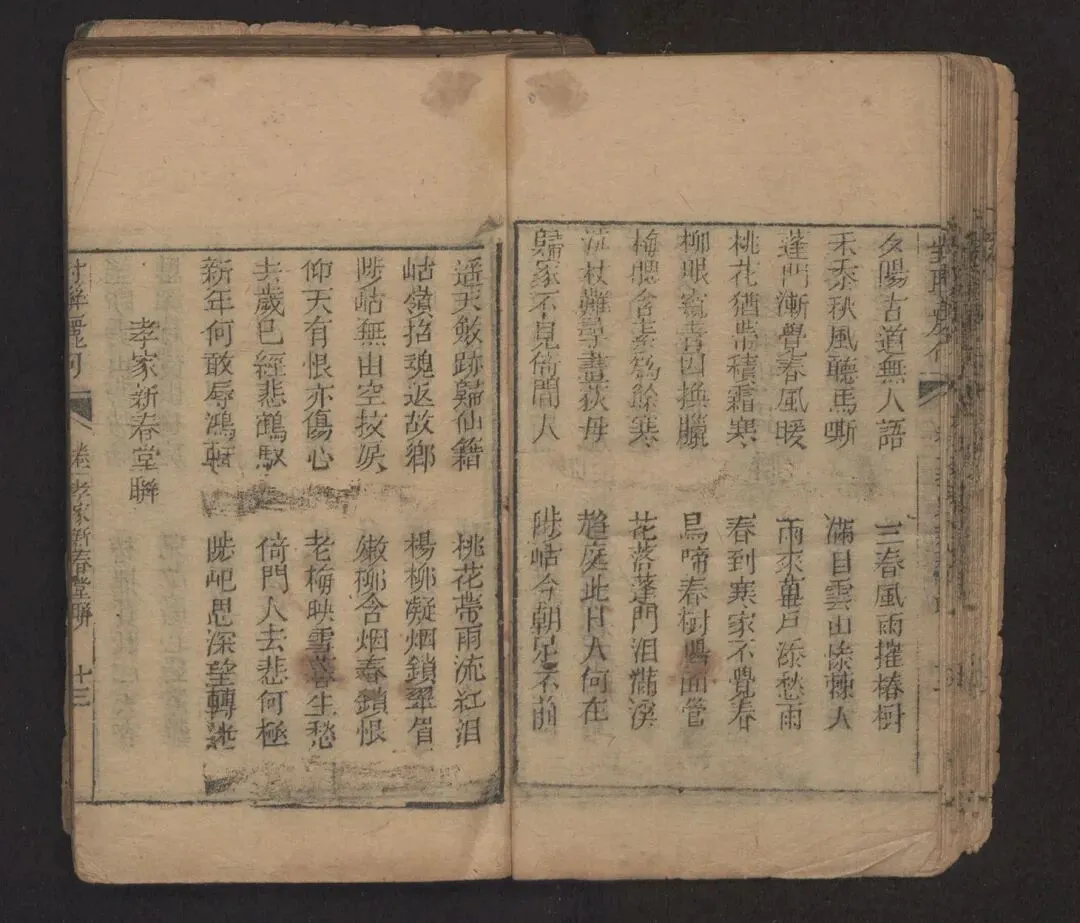 夕陽古道無人語 三春風雨摧椿樹
禾黍秋風聽馬嘶 滿目雲山慘棘人
蓬門漸覺春風暖 雨來蓽戶添愁雨
桃花猶帶積霜寒 春到寒家不覺春
柳眼窺春因換臘 鳥啼春樹
梅腮含素為餘寒 花落蓬門泪滿溪
泣杖難尋畫荻母 趨庭此日人何在
歸家不見倚閭人 陟岵今朝足不前
遥天斂跡歸仙籍 桃花帶雨流紅泪
岵嶺招魂返故鄉 楊柳凝烟鎖翠眉
陟岵無由空技淚 嫩柳含烟春鎖恨
仰天有恨亦傷心 老梅映雪暮生愁
去歲已經悲鶴馭 倚門人去悲何極
新年何敢辱鴻軒 陟屺思深望轉迷
孝家新春堂聯
麗句 卷一 孝家新春堂聯 十三